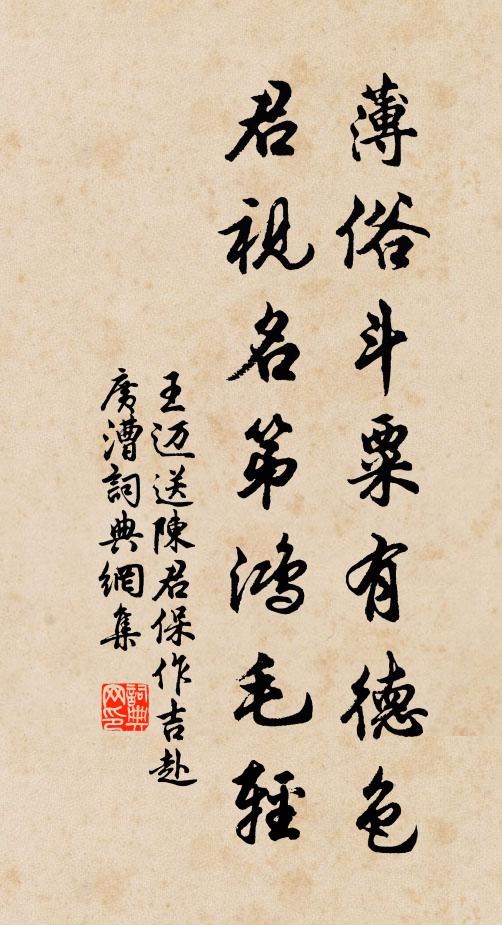 薄俗斗粟有德色
君視名第鴻毛輕
王迈送陳君保作吉赴
廣漕詞典網集
詞典网印